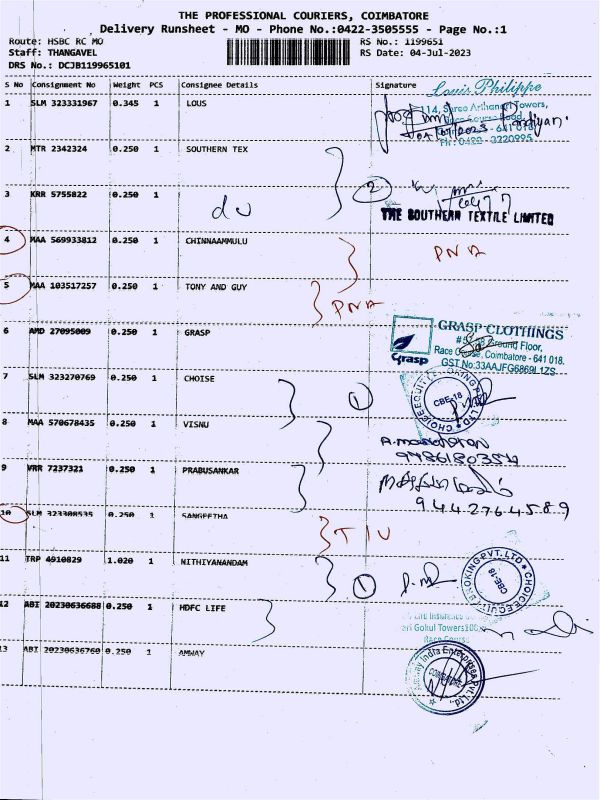 THE PROFESSIONAL COURIERS, COIMBATORE
Delivery Runsheet - MO - Phone No.:0422-3505555 - Page No.:1
Route: HSBC RC MO RS No.: 1199651
Staff: THANGAVEL RS Date: 04-Jul-2023
DRS No.: DCJB119965101
S No Consignment No Weight PCS Consignee Details Signature
Louis Philippe
1 SLM 323331967 0.345 1 LOUS
114, Towers,
Race Course Road,
641 018
Ph: 0422 - 2220995
2 MTR 2342324 0.250 1 SOUTHERN TEX
2
3 KRR 5755822 0.250 1
du
THE SOUTHERN TEXTILE LIMITED
4 MAA 569933812 0.250 1 CHINNAAMMULU
PNA
5 MAA 103517257 0.250 1 TONY AND GUY
PNA
6 AMD 27095009 0.250 1 GRASP
Grasp
GRASP CLOTHINGS
Ground Floor,
Race Course, Coimbatore - 641 018.
GST No:33AAJFG6869L1ZS
7 SLM 323270769 0.250 1 CHOISE
1
CBE-18
8 MAA 570678435 0.250 1 VISNU
9 VRR 7237321 0.250 1 PRABUSANKAR
9442764589
10 SLM 323308535 0.250 1 SANGEETHA
11 TRP 4910829 1.020 1 NITHIYANANDAM
1
CHOICE EQUITY BROKING PVT. LTD
CBE-18
12 ABI 20230636688 0.250 1 HDFC LIFE
Gokul Towers
Race Course
13 ABI 20230636760 0.250 1 AMWAY
Amway India Enterprises Pvt. Ltd.
COIMBATORE